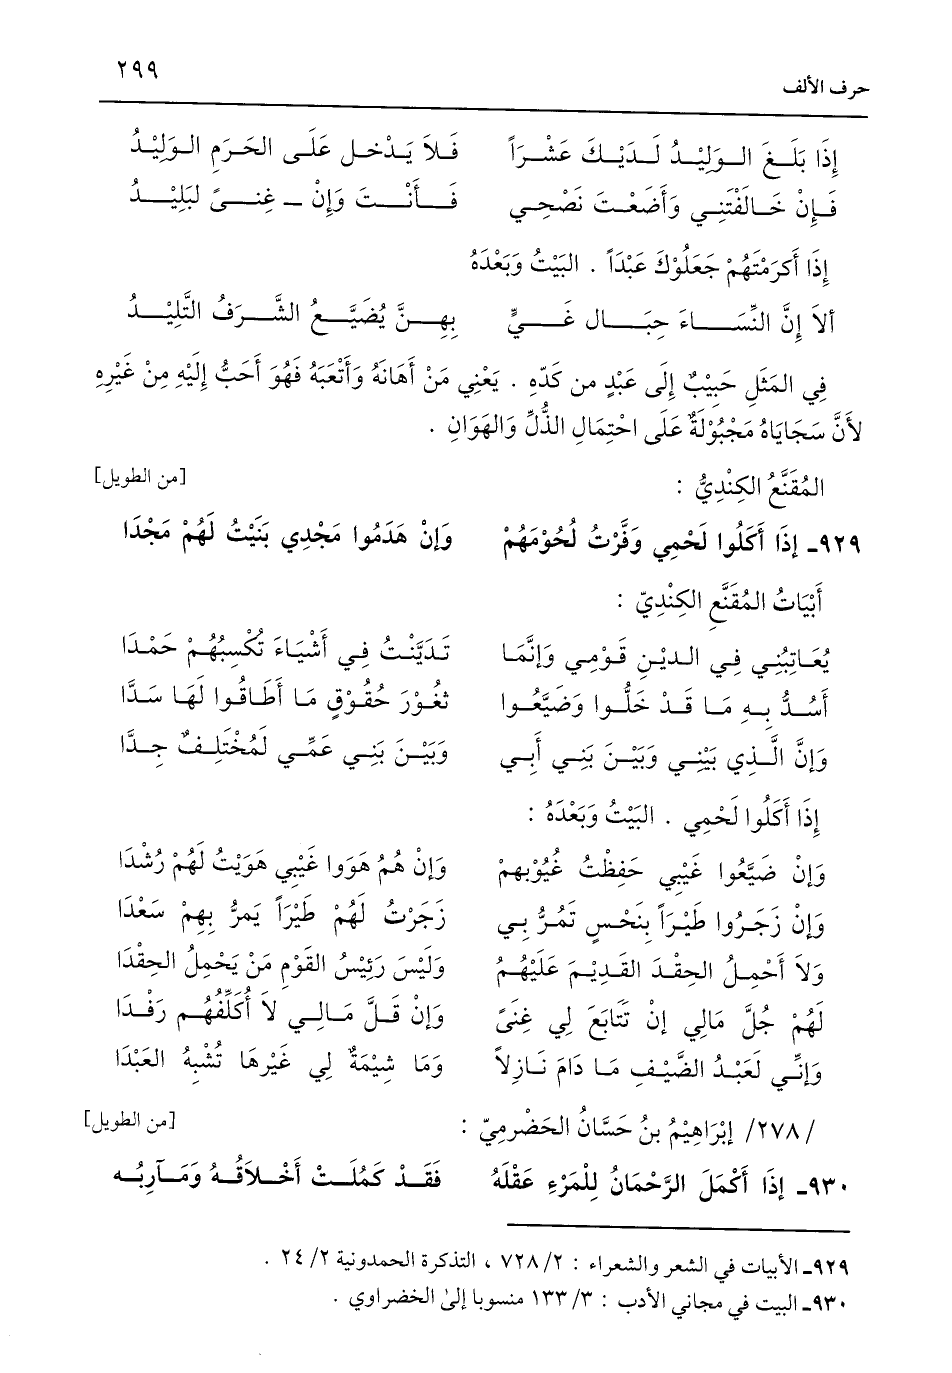 حرف الألف ٢٩٩
إِذَا بَلَغَ الوَلِيْدُ لَدَيْكَ عَشْرَاً فَلاَ يَدْخل عَلَى الحَرَمِ الوَلِيْدُ
فَإِنْ خَالَفْتَنِي وَأَضَعْتَ نَصْحِي فَأَنْتَ وَإِنْ ــ غِنىً لَبَلِيْدُ
إِذَا أَكرَمْتَهُمْ جَعَلُوْكَ عَبْدَاً . البَيْتُ وَبَعْدَهُ
ألاَ إِنَّ النِّسَاءَ حِبَال غَيٍّ بِهِنَّ يُضَيَّعُ الشَّرَفُ التَّلِيْدُ
فِي المَثَلِ حَبِيْبٌ إِلَى عَبْدٍ من كَدّهِ . يَعْنِي مَنْ أَهَانَهُ وَأَتْعَبَهُ فَهُوَ أَحَبُّ إِلَيْهِ مِنْ غَيْرِهِ
لأَنَّ سَجَايَاهُ مَجْبُوْلَةٌ عَلَى احْتِمَالِ الذُّلِّ وَالهَوَانِ .
المُقَنَّعُ الكِنْدِيُّ : [من الطويل]
٩٢٩ـ إِذَا أَكَلُوا لَحْمِي وَفَّرْتُ لُحُوْمَهُمْ وَإِنْ هَدَمُوا مَجْدِي بَنَيْتُ لَهُمْ مَجْدَا
أَبْيَاتُ المُقَنَّعِ الكِنْدِيّ :
يُعَاتِبُنِي فِي الدِيْنِ قَوْمِي وَإِنَّمَا تَدَيَّنْتُ فِي أَشْيَاءَ تُكْسِبُهُمْ حَمْدَا
أَسُدُّ بِهِ مَا قَدْ خَلُّوا وَضَيَّعُوا ثُغُوْرَ حُقُوْقٍ مَا أَطَاقُوا لَهَا سَدَّا
وَإِنَّ الَّذِي بَيْنِي وَبَيْنَ بَنِي أَبِي وَبَيْنَ بَنِي عَمِّي لَمُخْتَلِفٌ جِدَّا
إِذَا أَكَلُوا لَحْمِي . البَيْتُ وَبَعْدَهُ :
وَإِنْ ضَيَّعُوا غَيْبِي حَفِظْتُ غُيُوْبِهمْ وَإِنْ هُمُ هَوَوا غَيْبِي هَوَيْتُ لَهُمْ رُشْدَا
وَإِنْ زَجَرُوا طَيْرَاً بِنَحْسٍ تَمُرُّ بِي زَجَرْتُ لَهُمْ طَيْرَاً يَمرُّ بِهِمْ سَعْدَا
وَلاَ أَحْمِلُ الحِقْدَ القَدِيْمَ عَلَيْهُمُ وَلَيْسَ رَئِيْسُ القَوْمِ مَنْ يَحْمِلُ الحِقْدَا
لَهُمْ جُلَّ مَالِي إِنْ تَتَابَعَ لِي غِنَىً وَإِنْ قَلَّ مَالِي لاَ أُكَلِّفُهُم رَفْدَا
وَإِنِّي لَعَبْدُ الضَّيْفِ مَا دَامَ نَازِلاً وَمَا شِيْمَةٌ لِي غَيْرهَا تُشْبهُ العَبْدَا
/٢٧٨/ إِبْرَاهِيْمُ بنُ حَسَّانُ الحَضْرمِيّ : [من الطويل]
٩٣٠ـ إِذَا أَكْمَلَ الرَّحْمَانُ لِلْمَرْءِ عَقْلَهُ فَقَدْ كَمُلَتْ أَخْلاَقُهُ وَمَآرِبُه
٩٢٩ـ الأبيات في الشعر والشعراء : ٧٢٨/٢ ، التذكرة الحمدونية ٢٤/٢ .
٩٣٠ـ البيت في مجاني الأدب : ١٣٣/٣ منسوبا إلى الخضراوي .